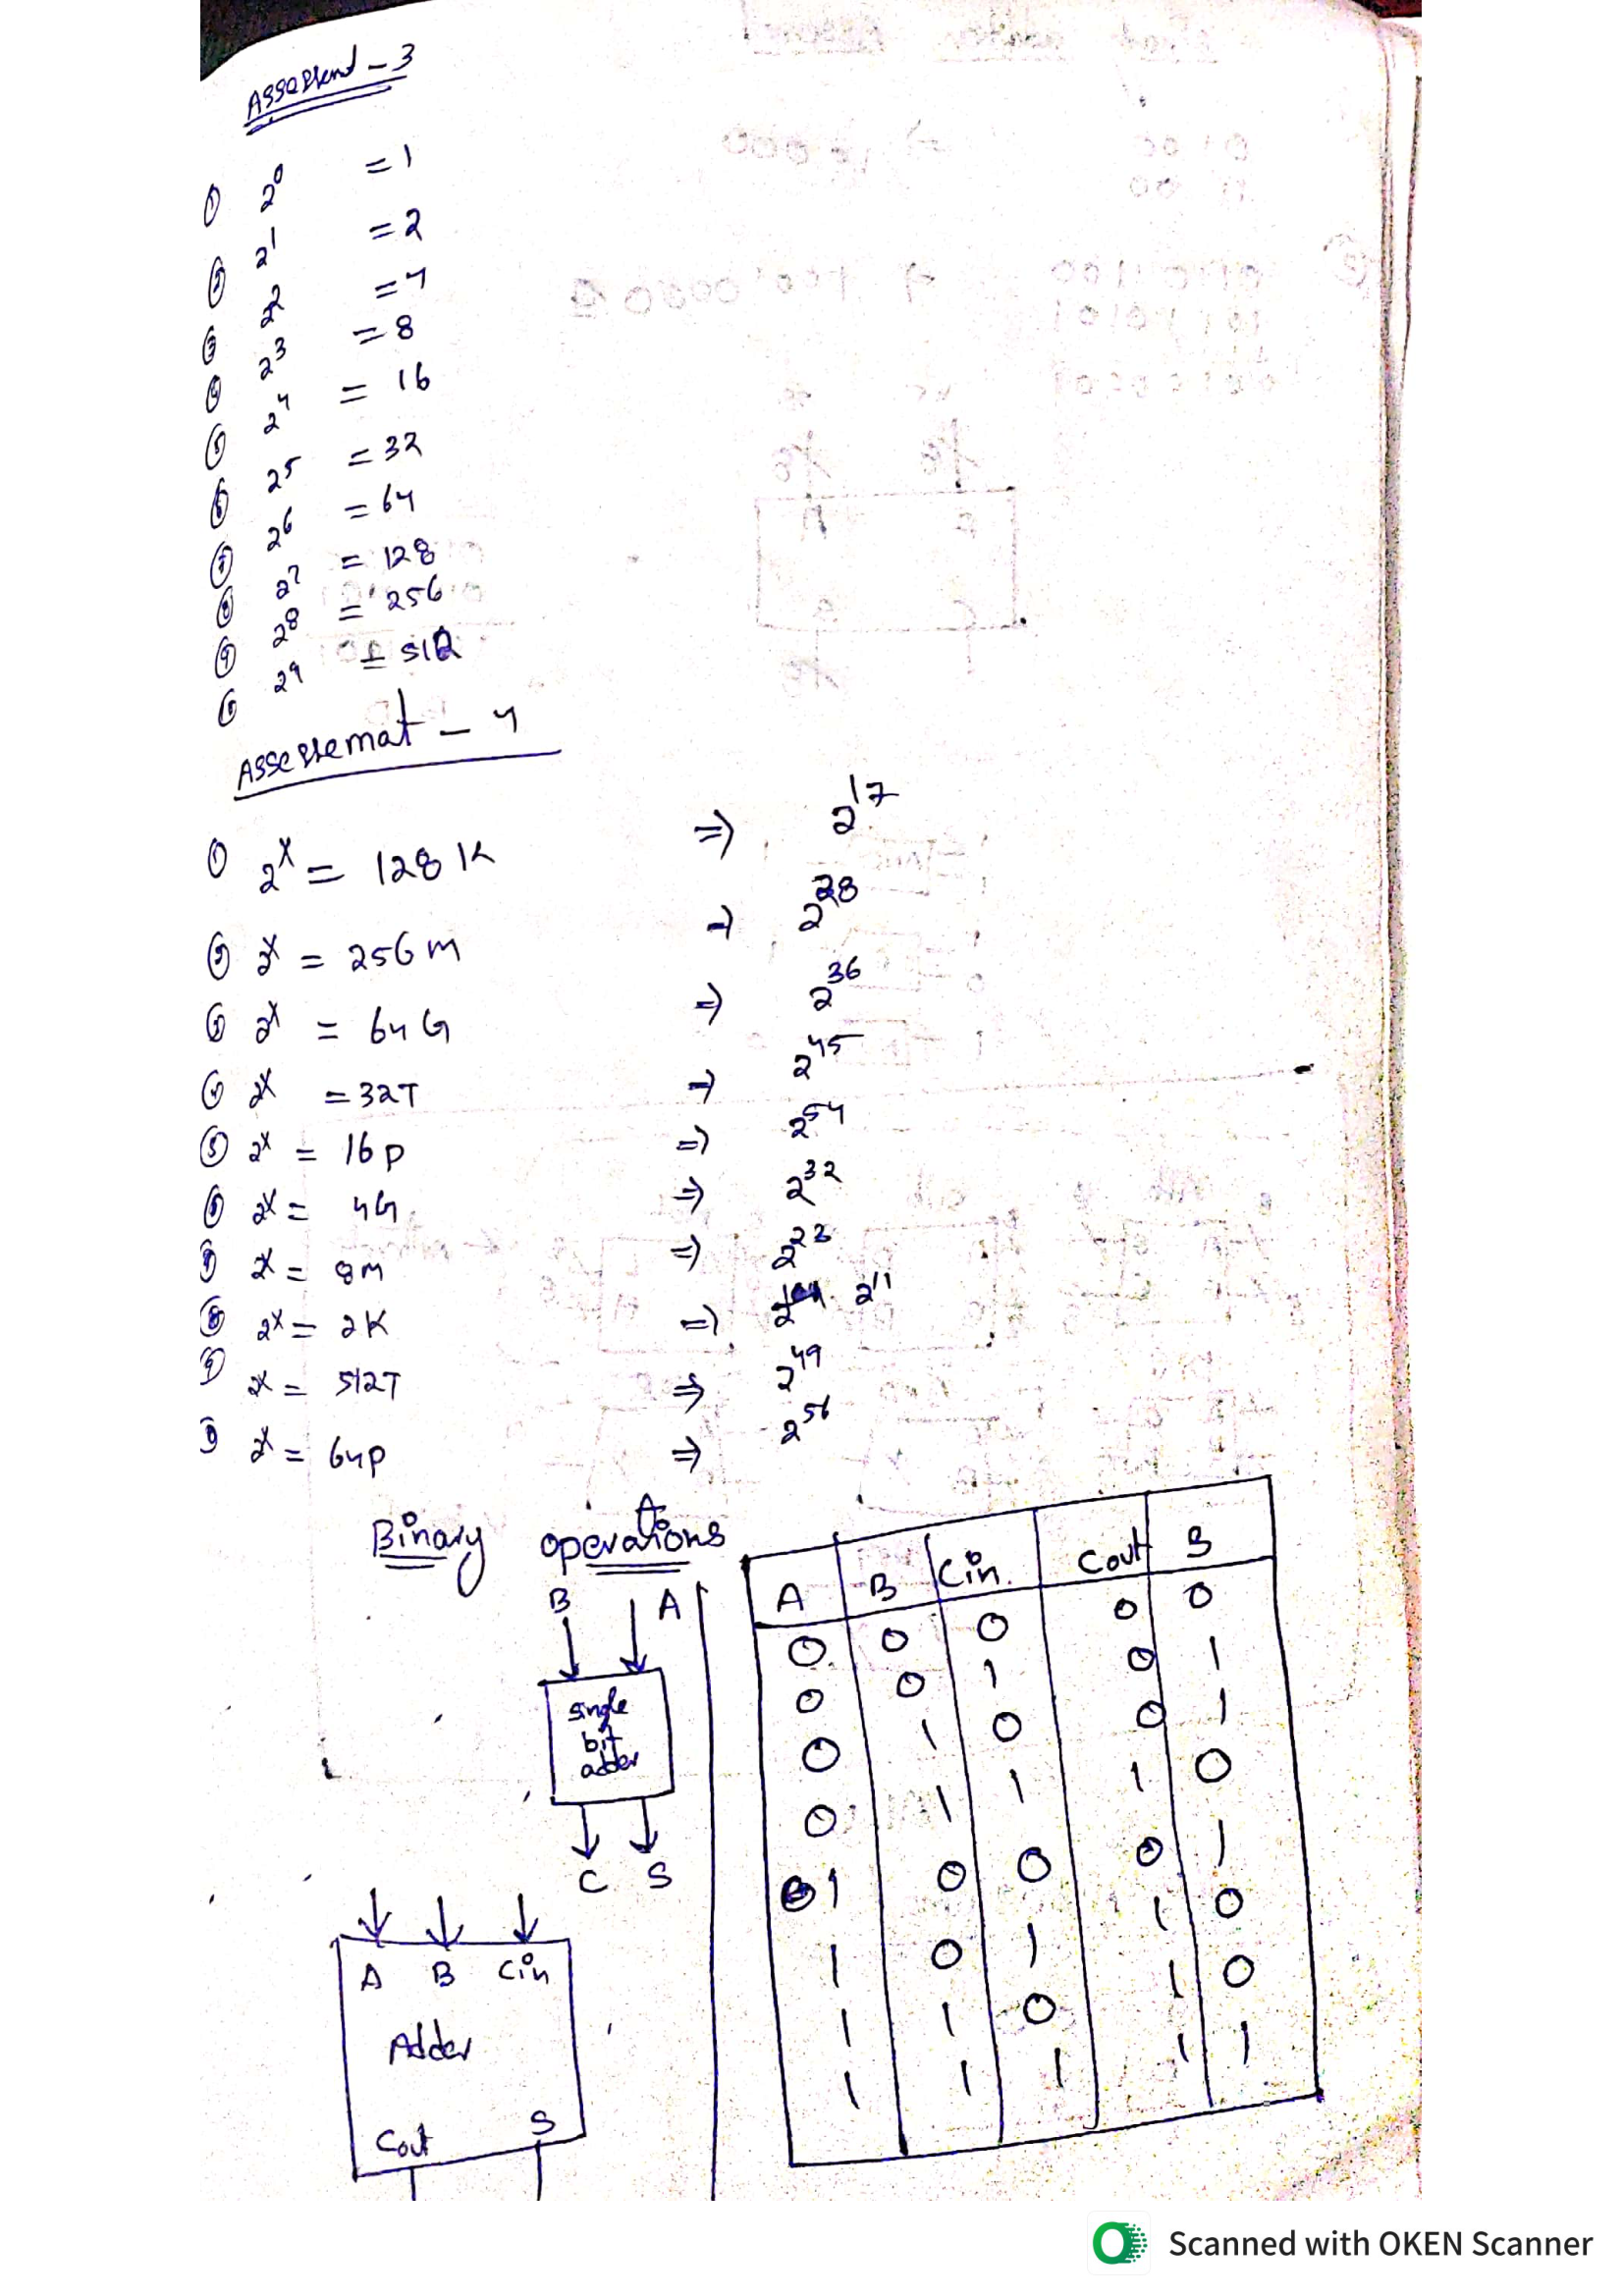 Assessment - 3
① 2⁰ = 1
② 2¹ = 2
③ 2² = 4
④ 2³ = 8
⑤ 2⁴ = 16
⑥ 2⁵ = 32
⑦ 2⁶ = 64
⑧ 2⁷ = 128
⑨ 2⁸ = 256
⑩ 2⁹ = 512
Assessemat - 4
① 2ˣ = 128 K ⇒ 2¹⁷
② 2ˣ = 256 m ⇒ 2²⁸
③ 2ˣ = 64 G ⇒ 2³⁶
④ 2ˣ = 32T ⇒ 2⁴⁵
⑤ 2ˣ = 16 p ⇒ 2⁵⁴
⑥ 2ˣ = 4G ⇒ 2³²
⑦ 2ˣ = 8m ⇒ 2²³
⑧ 2ˣ = 2K ⇒ 2¹¹
⑨ 2ˣ = 512T ⇒ 2⁴⁹
2ˣ = 64p ⇒ 2⁵⁶
Binary operations
B A
single
bit
adder
C S
A B Cin
Adder
Cout S
A B Cin Cout S
0 0 0 0 0
0 0 1 0 1
0 1 0 0 1
0 1 1 1 0
1 0 0 0 1
1 0 1 1 0
1 1 0 1 0
1 1 1 1 1
Scanned with OKEN Scanner